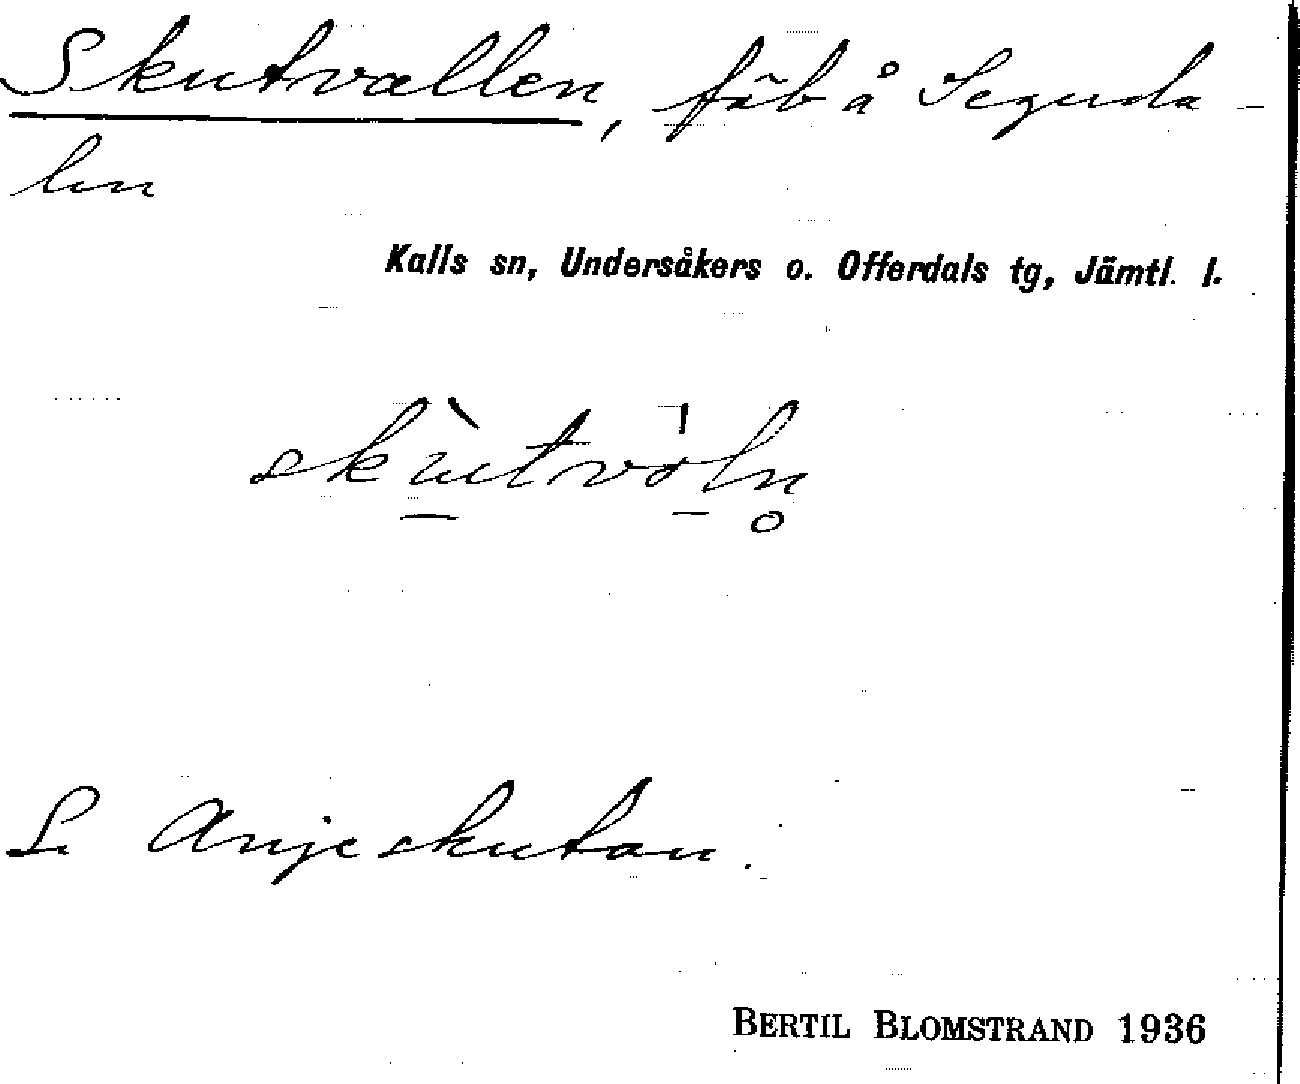 Skutvallen, fäb å Seguda-
len
Kalls sn, Undersåkers o. Offerdals tg, Jämtl. l.
skùtvòln̥
S. Anjeskutan.
BERTIL BLOMSTRAND 1936